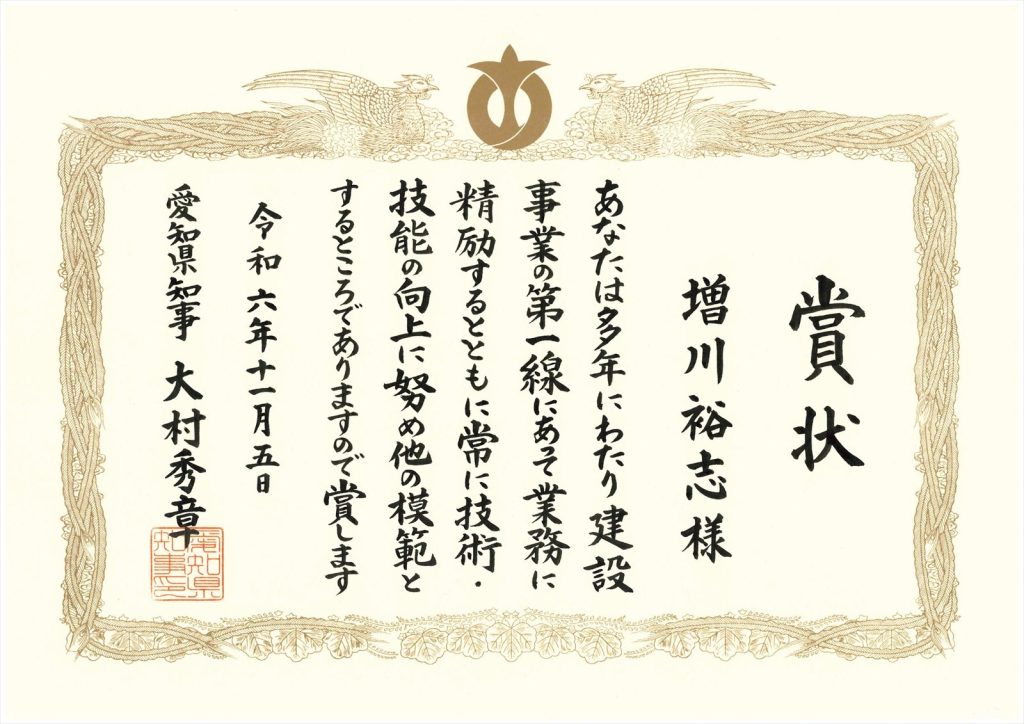 賞状
増川裕志様
あなたは多年にわたり建設
事業の第一線にあって業務に
精励するとともに常に技術・
技能の向上に努め他の模範と
するところでありますので賞します
令和六年十一月五日
愛知県知事 大村秀章
愛知県
知事印